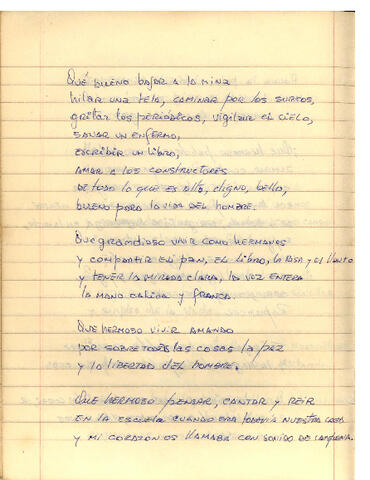 Qué bueno bajar a la mina
hilar una tela, caminar por los surcos,
gritar los periódicos, vigilar el cielo,
salvar un enfermo,
escribir un libro,
amar a los constructores
de todo lo que es alto, digno, bello,
bueno para la vida del hombre.
Que grandioso vivir como hermanos
y compartir el pan, el libro, la rosa y el llanto
y tener la mirada clara, la voz entera
la mano calida y franca.
Que hermoso vivir amando
por sobre todas las cosas la paz
y la libertad del hombre.
Que hermoso pensar, cantar y reir
en la escuela cuando era todavía nuestra casa
y mi corazon os llamaba con sonido de campana.